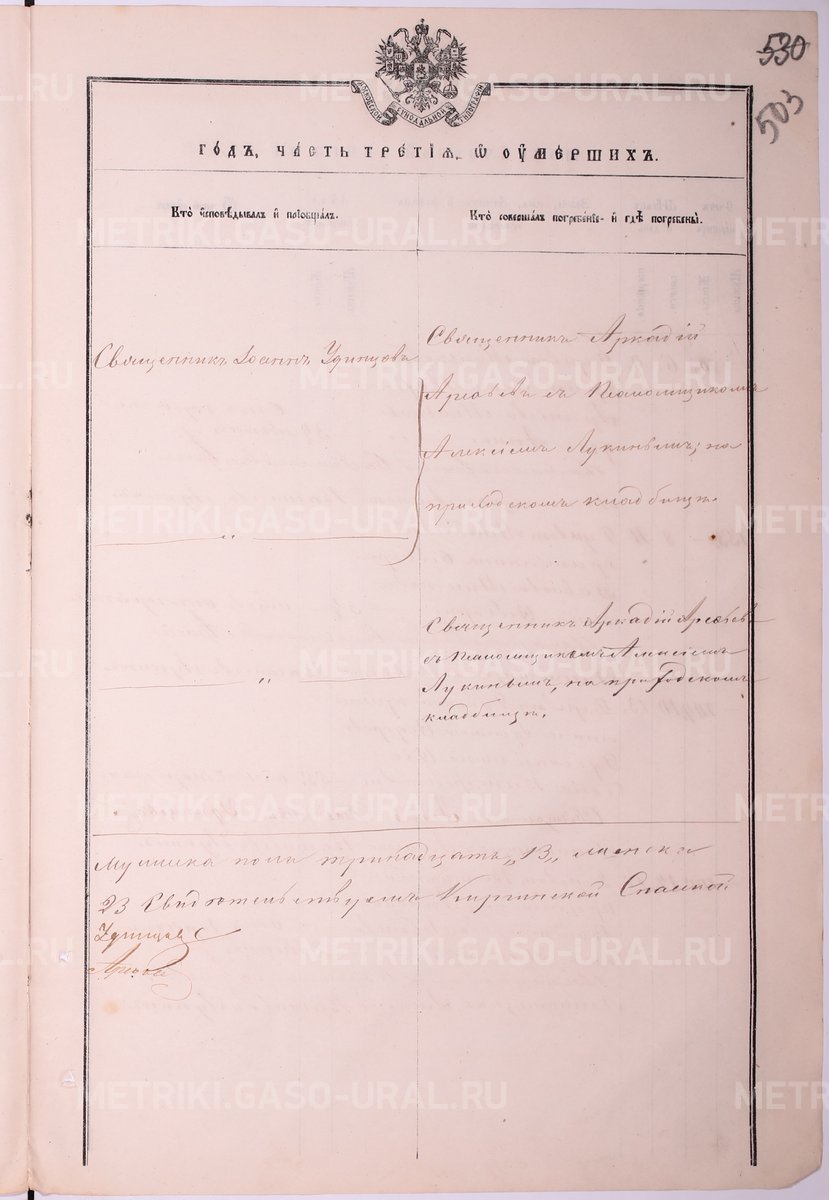 530
503
МОСКОВСКОЙ СѴНОДАЛЬНОЙ ТИПОГРАФІИ
го́дъ, ча́сть тре́тїѧ, ѡ҆ оу҆ме́ршихъ.
Кто̀ и҆сповѣ́дывалъ и҆ прїобща́лъ.
Кто̀ соверша́лъ погребе́нїе и҆ гдѣ̀ погребены̀.
Священникъ Іоаннъ Удинцовъ
Священникъ Аркадій
Арефьевъ съ Псаломщикомъ
Алексіемъ Лукинымъ, на
приходскомъ кладбищѣ.
"
Священникъ Аркадій Арефьевъ
съ Псаломщикомъ Алексіемъ
Лукинымъ, на приходскомъ
кладбищѣ.
"
мужеска пола тринадцать „13„ женска
23 Свидѣтельствуемъ Киргинской Спасской
Удинцовъ
METRIKI.GASO-URAL.RU